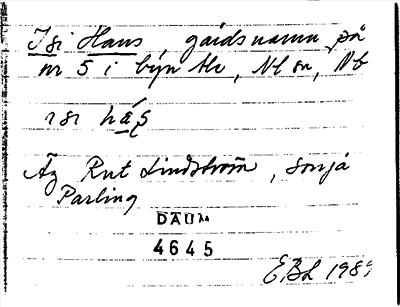 Isi Hans, gårdsnamn på
nr 5 i byn Alv, Nb sn, Nb
ısı hás̨
Äg Rut Lindström, Sonja
Parling
DAUM
4645
EBL 1989